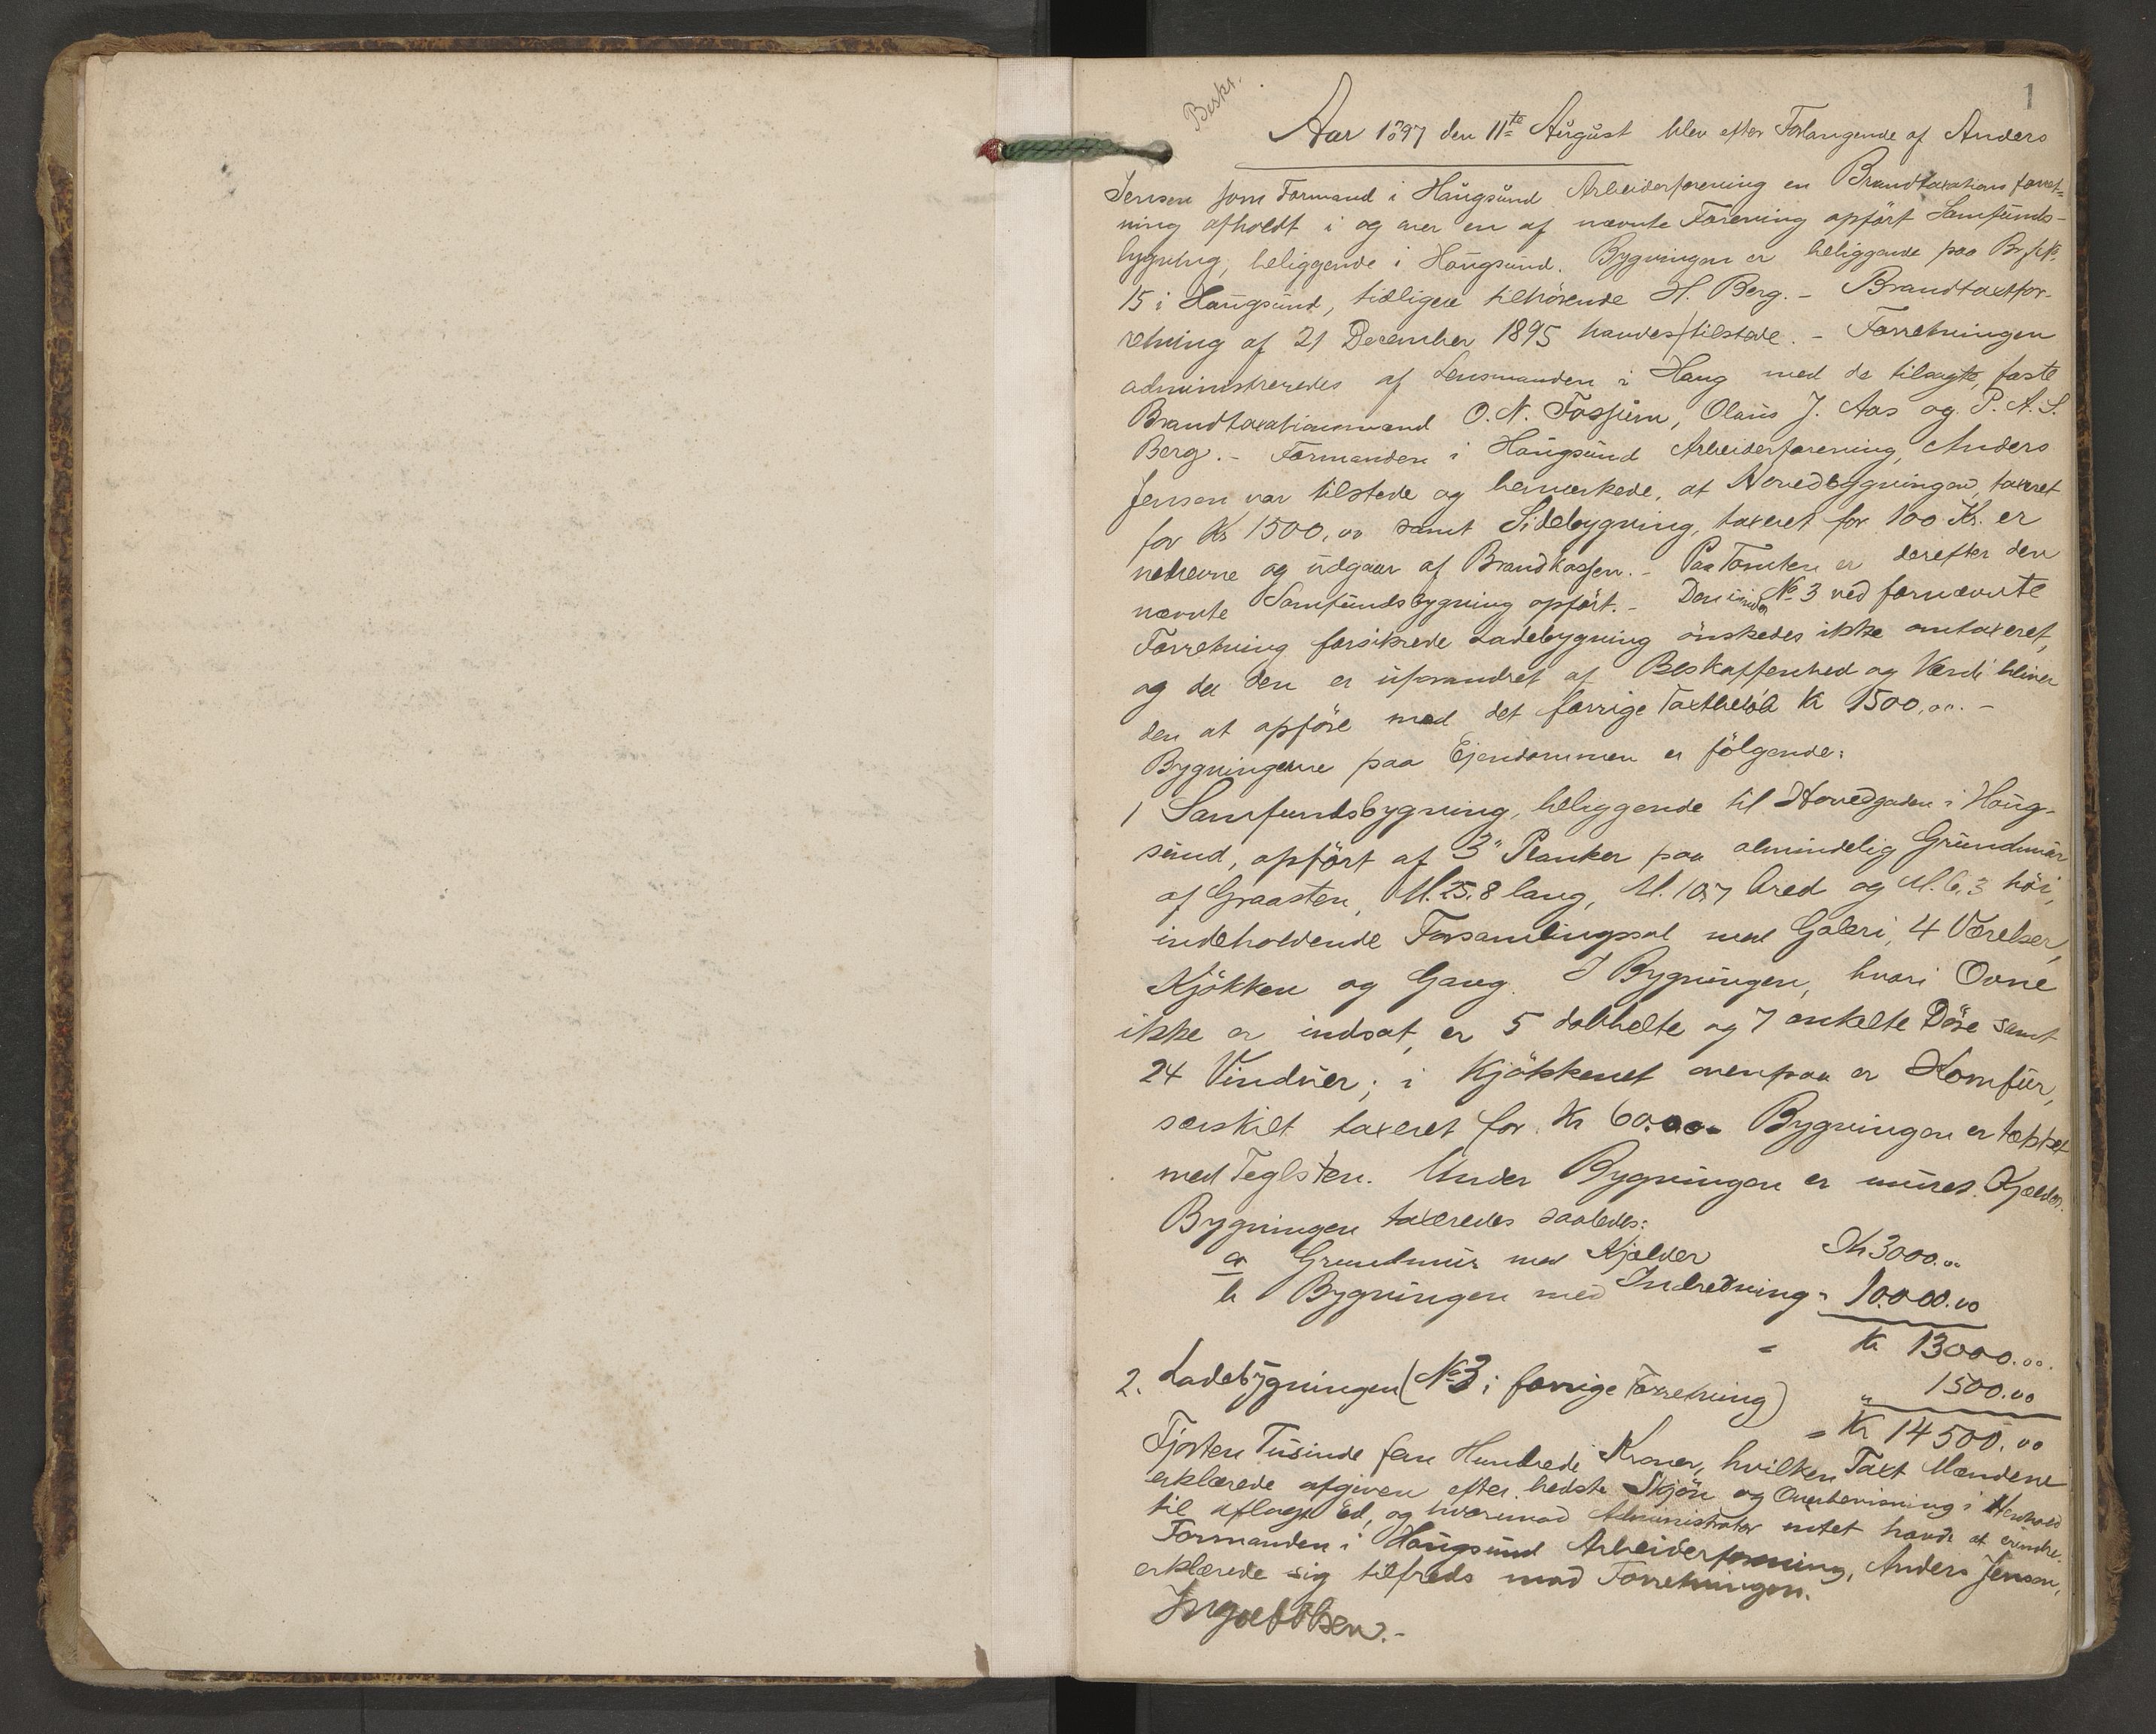 1
Beskr.
Aar 1897 den 11te August blev efter Forlangende af Anders
Jensen som Formand i Haugsund Arbeiderforening en Brandtaxationsforret-
ning afholdt i og over en af nævnte Forening opført Samfunds-
bygning, beliggende i Haugsund. Bygningen er beliggende paa
15 i Haugsund, tidligere tilhørende H. Berg. - Brandtaxtfor-
retning af 21 December 1895 havdes tilstede. - Forretningen
administreredes af Lensmanden i Haug med de tilsagte, faste
Brandtaxationsmænd O. N. Fossum, Olaus J. Aas og P. A. S.
Berg. - Formanden i Haugsund Arbeiderforening, Anders
Jensen var tilstede og bemærkede, at Hovedbygningen, taxeret
for Kr 1500,00 samt Sidebygning, taxeret for 100 Kr. er
nedrevne og udgaar af Brandkassen. - Paa Tomten er derefter den
nævnte Samfundsbygning opført. - Den under No 3 ved fornævnte
Forretning forsikrede Ladebygning ønskedes ikke omtaxeret,
og da den er uforandret af Beskaffenhed og Værdi bliver
den at opføre med det forrige Taxtbeløb Kr 1500,00. -
Bygningerne paa Ejendommen er følgende:
1 Samfundsbygning, beliggende til Hovedgaden i Haug-
sund, opført af 3" Planker paa almindelig Grundmur
af Graasten, M. 25.8 lang, M. 10,7 bred og M. 6,3 höi,
indeholdende Forsamlingssal med Galeri, 4 Værelser,
Kjökken og Gang. I Bygningen, hvori Ovne
ikke er indsat, er 5 dobbelte og 7 enkelte Döre samt
24 Vinduer; i Kjökkenet ovenpaa er Komfur,
særskilt taxeret for Kr 60.00. Bygningen er tækket
med Teglsten. Under Bygningen er muret Kjælder.
Bygningen taxeredes saaledes:
a Grundmur med Kjælder Kr 3000.00
b Bygningen med Indredning " 10.000.00
= Kr 13000.00.
2. Ladebygningen (No 3 i forrige Forretning) " 1500.00
= Kr 14500.00
Fjorten Tusinde fem Hundrede Kroner, hvilken Taxt Mændene
erklærede afgiven efter bedste Skjön og Overbevisning i Henhold
til aflagt Ed, og hvorimod Administrator intet havde at erindre.
Formanden i Haugsund Arbeiderforening, Anders Jensen,
erklærede sig tilfreds med Forretningen.